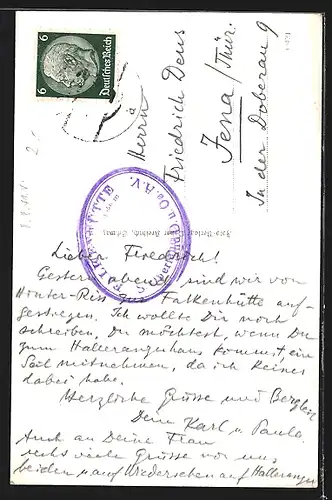 6
Deutsches Reich
6
Herrn
Friedrich Dens
Jena/Thür.
In der Doberau 9
FALKENHÜTTE
Lieber Friedrich!
Gestern abend sind wir von
Hinter-Riss zur Falkenhütte auf-
gestiegen. Ich wollte Dir noch
schreiben, Du möchtest, wenn Du
zum Hallerangerhaus kommst, ein
Seil mitnehmen, da ich keines
dabei habe.
Herzliche Grüsse und Bergheil
Dein Karl u. Paula.
Auch an Deine Frau
recht viele Grüsse von uns
beiden u. auf Wiedersehen auf Halleranger